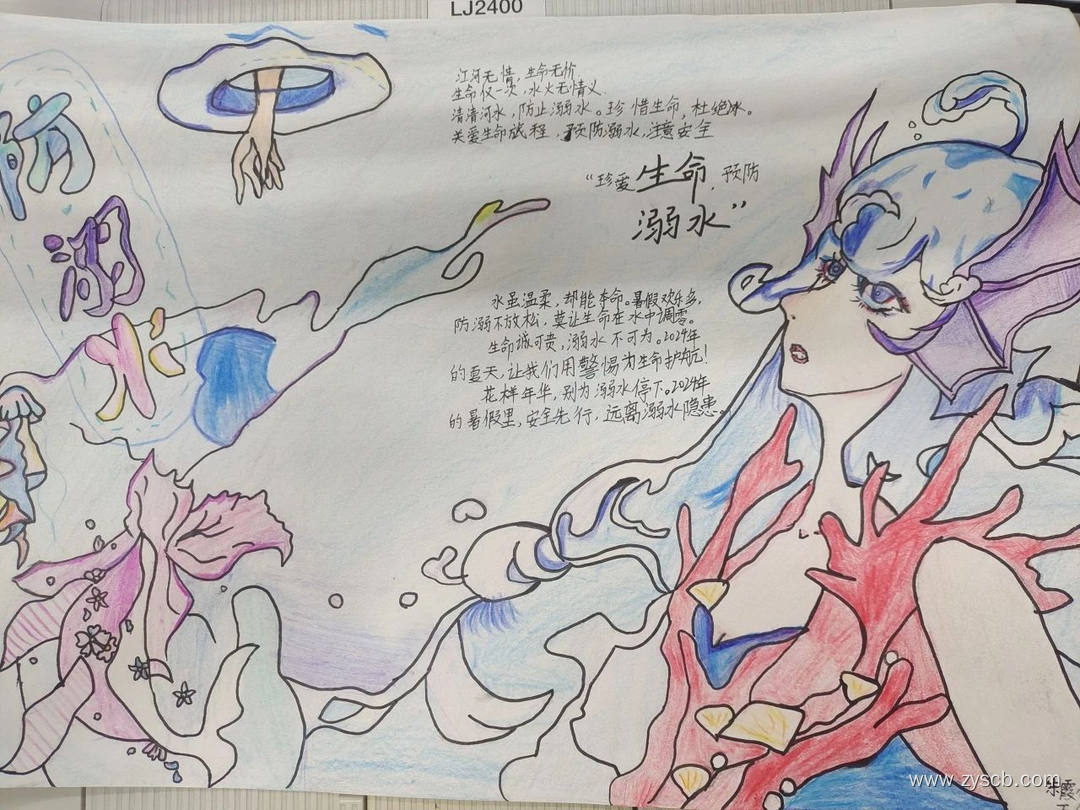 LJ2400
防
溺
水
江河无情,生命无价
生命仅一次,水火无情义.
清清河水,防止溺水。珍惜生命,杜绝冰。
关爱生命旅程,预防溺水,注意安全
“珍爱生命.预防
溺水”
水虽温柔,却能夺命。暑假欢乐多,
防溺不放松,莫让生命在水中凋零。
生命诚可贵,溺水不可为。2024年
的夏天,让我们用警惕为生命护航!
花样年华,别为溺水停下。2024年
的暑假里,安全先行,远离溺水隐患。
www.zyscb.com